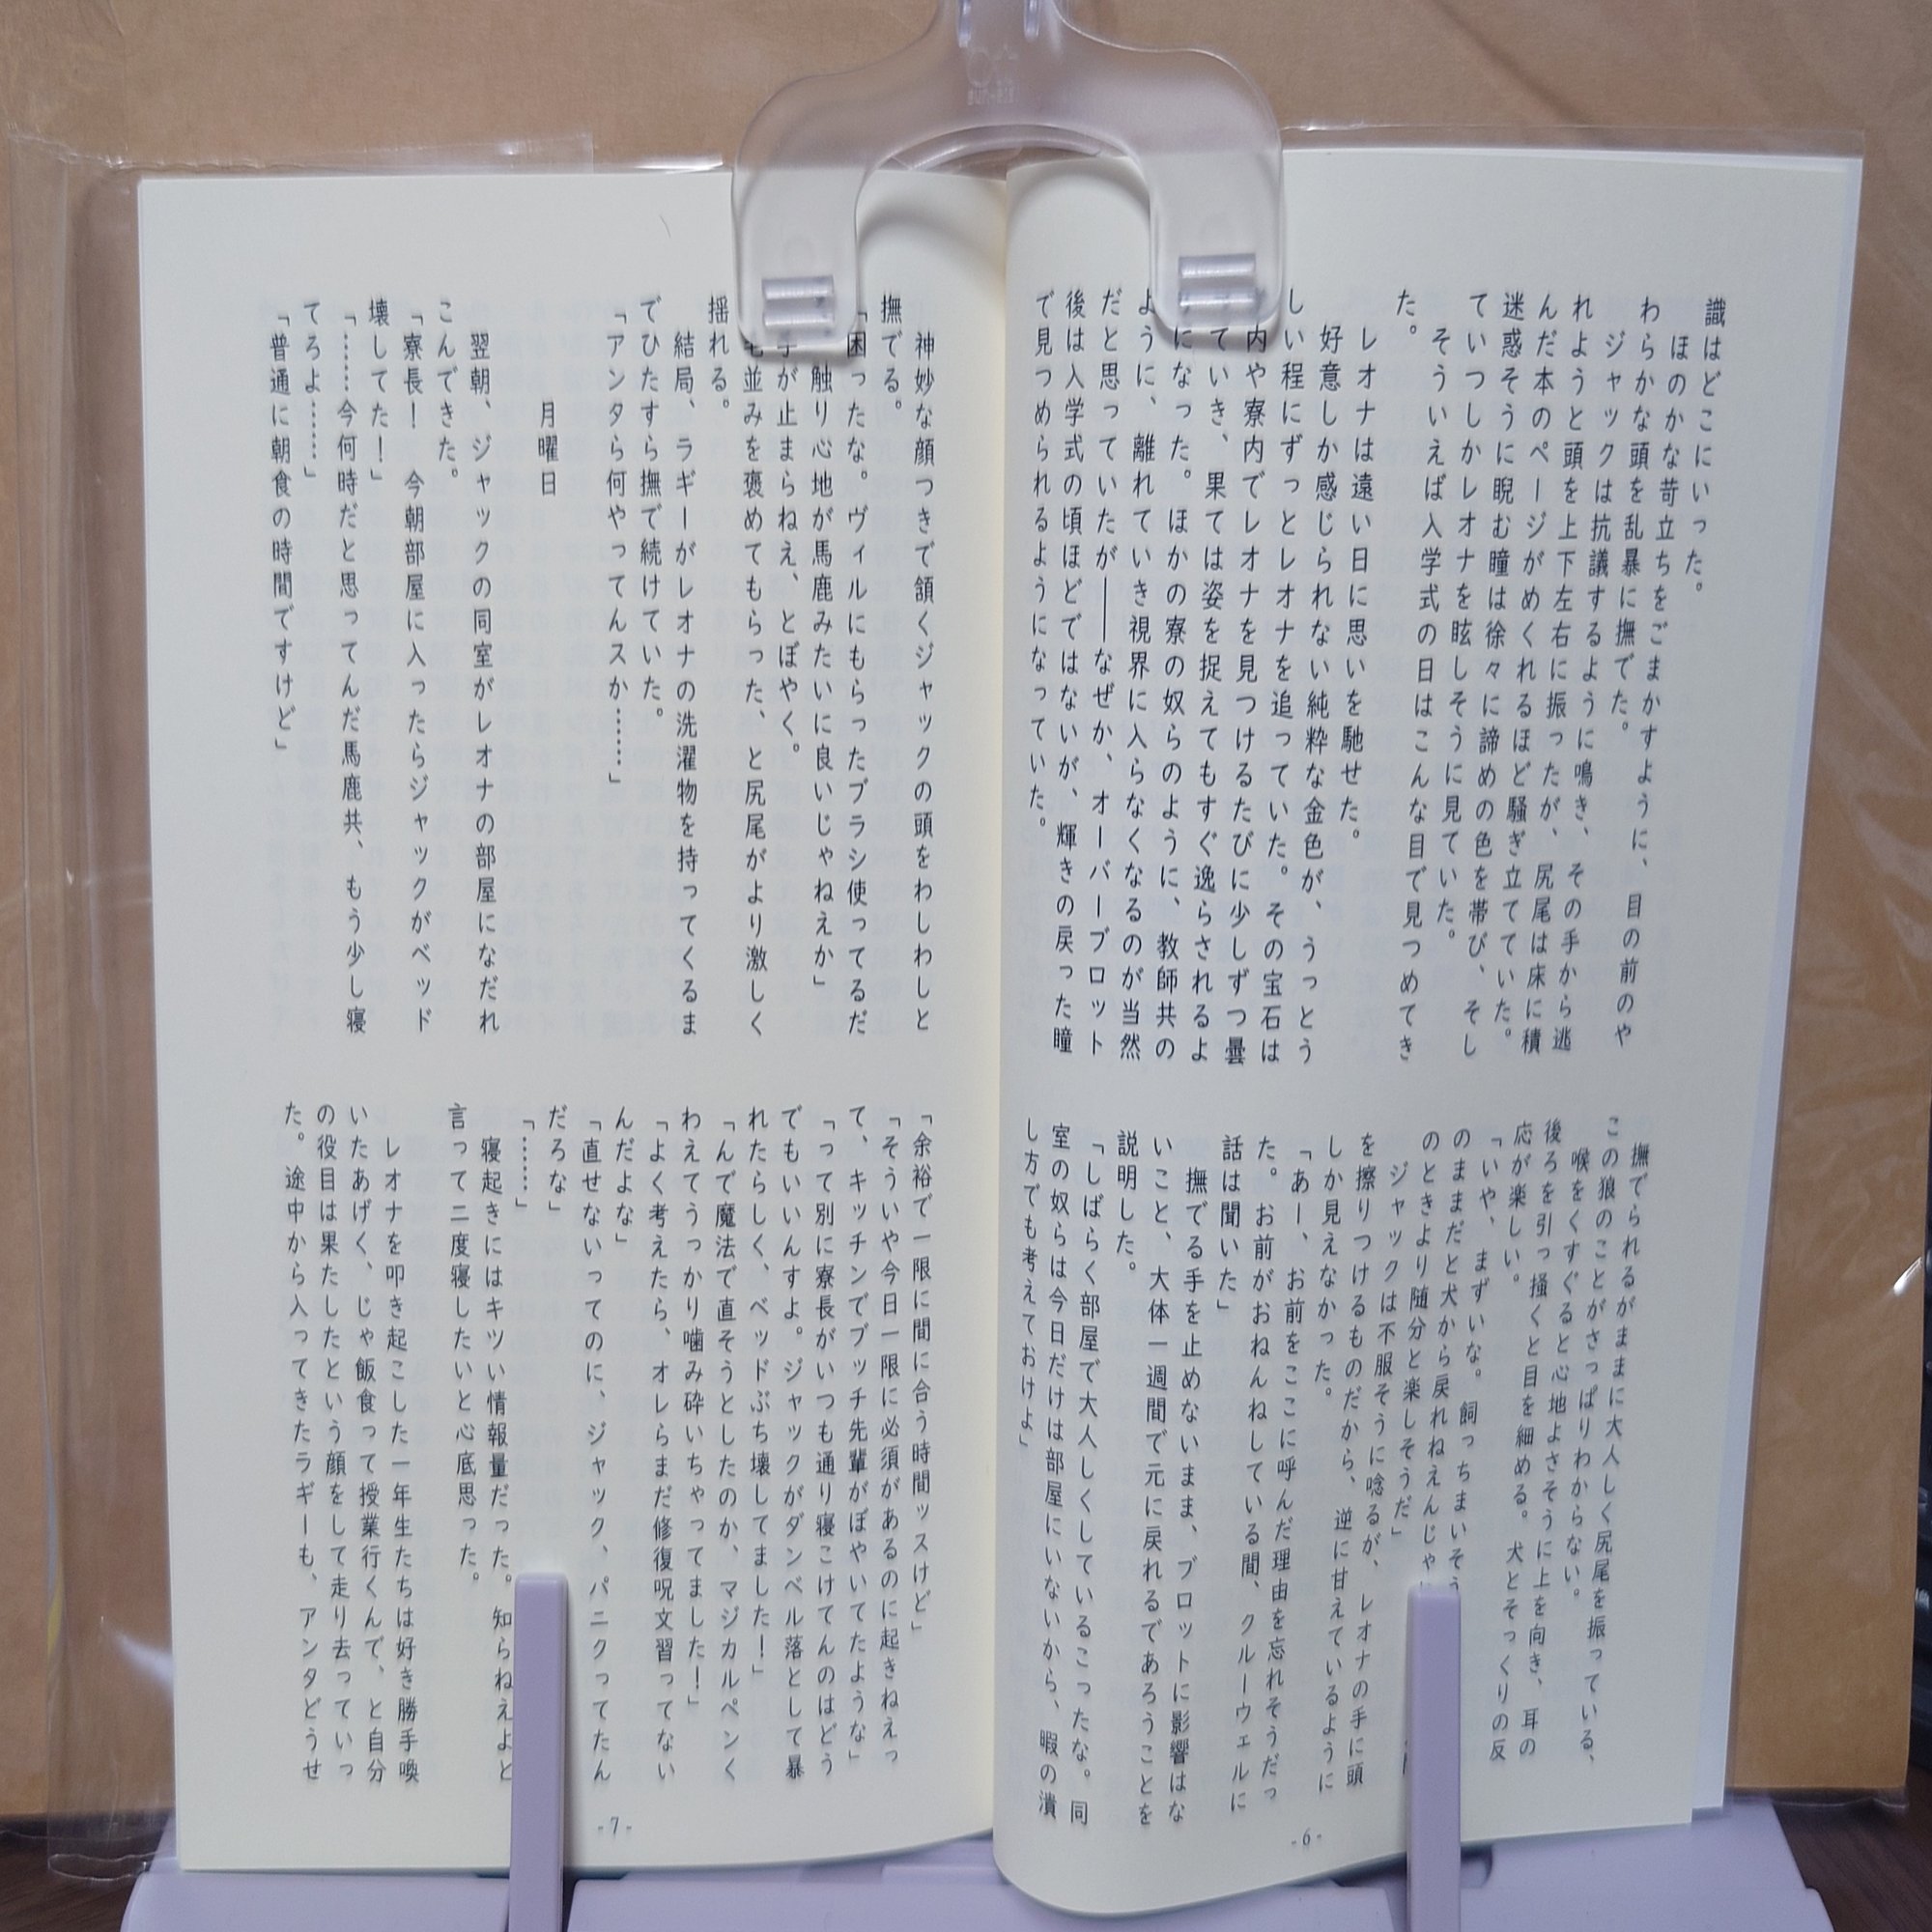 識はどこにいった。
ほのかな苛立ちをごまかすように、目の前のや
わらかな頭を乱暴に撫でた。
ジャックは抗議するように鳴き、その手から逃
れようと頭を上下左右に振ったが、尻尾は床に積
んだ本のページがめくれるほど騒ぎ立てていた。
迷惑そうに睨む瞳は徐々に諦めの色を帯び、そし
ていつしかレオナを眩しそうに見ていた。
そういえば入学式の日はこんな目で見つめてき
た。
レオナは遠い日に思いを馳せた。
好意しか感じられない純粋な金色が、うっとう
しい程にずっとレオナを追っていた。その宝石は
内や寮内でレオナを見つけるたびに少しずつ曇
ていき、果ては姿を捉えてもすぐ逸らされるよ
になった。ほかの寮の奴らのように、教師共の
ように、離れていき視界に入らなくなるのが当然
だと思っていたが――なぜか、オーバーブロット
後は入学式の頃ほどではないが、輝きの戻った瞳
で見つめられるようになっていた。
撫でられるがままに大人しく尻尾を振っている、
この狼のことがさっぱりわからない。
喉をくすぐると心地よさそうに上を向き、耳の
後ろを引っ掻くと目を細める。犬とそっくりの反
応が楽しい。
「いや、まずいな。飼っちまいそう
のままだと犬から戻れねえんじゃ
のときより随分と楽しそうだ」
ジャックは不服そうに唸るが、レオナの手に頭
を擦りつけるものだから、逆に甘えているように
しか見えなかった。
「あー、お前をここに呼んだ理由を忘れそうだっ
た。お前がおねんねしている間、クルーウェルに
話は聞いた」
撫でる手を止めないまま、ブロットに影響はな
いこと、大体一週間で元に戻れるであろうことを
説明した。
「しばらく部屋で大人しくしているこったな。同
室の奴らは今日だけは部屋にいないから、暇の潰
し方でも考えておけよ」
-6-
神妙な顔つきで頷くジャックの頭をわしわしと
撫でる。
「困ったな。ヴィルにもらったブラシ使ってるだ
触り心地が馬鹿みたいに良いじゃねえか」
手が止まらねえ、とぼやく。
毛並みを褒めてもらった、と尻尾がより激しく
揺れる。
結局、ラギーがレオナの洗濯物を持ってくるま
でひたすら撫で続けていた。
「アンタら何やってんスか……」
月曜日
翌朝、ジャックの同室がレオナの部屋になだれ
こんできた。
「寮長！　今朝部屋に入ったらジャックがベッド
壊してた！」
「……今何時だと思ってんだ馬鹿共、もう少し寝
てろよ……」
「普通に朝食の時間ですけど」
「余裕で一限に間に合う時間ッスけど」
「そういや今日一限に必須があるのに起きねえっ
て、キッチンでブッチ先輩がぼやいてたような」
「って別に寮長がいつも通り寝こけてんのはどう
でもいいんすよ。ジャックがダンベル落として暴
れたらしく、ベッドぶち壊してました！」
「んで魔法で直そうとしたのか、マジカルペンく
わえてうっかり噛み砕いちゃってました！」
「よく考えたら、オレらまだ修復呪文習ってない
んだよな」
「直せないってのに、ジャック、パニクってたん
だろな」
「……」
寝起きにはキツい情報量だった。知らねえよと
言って二度寝したいと心底思った。
レオナを叩き起こした一年生たちは好き勝手喚
いたあげく、じゃ飯食って授業行くんで、と自分
の役目は果たしたという顔をして走り去っていっ
た。途中から入ってきたラギーも、アンタどうせ
-7-